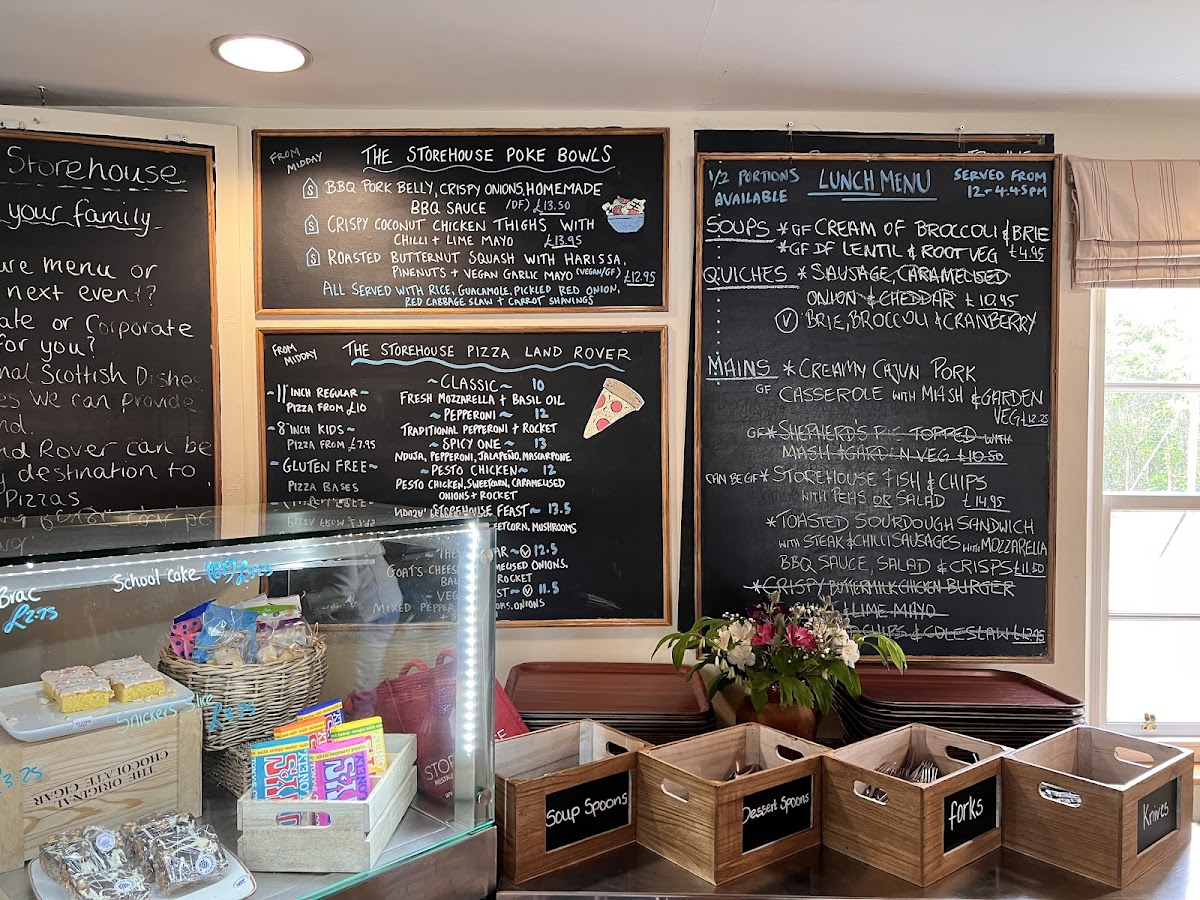 Storehouse
your family
menu or
next event?
or Corporate
for you?
Scottish Dishes
we can provide
Rover can be
destination to
Pizzas
FROM MIDDAY
THE STOREHOUSE POKE BOWLS
BBQ PORK BELLY, CRISPY ONIONS, HOMEMADE
BBQ SAUCE (DF) £13.50
CRISPY COCONUT CHICKEN THIGHS WITH
CHILLI + LIME MAYO £13.95
ROASTED BUTTERNUT SQUASH WITH HARISSA,
PINENUTS + VEGAN GARLIC MAYO (VEGAN/GF) £12.95
ALL SERVED WITH RICE, GUACAMOLE, PICKLED RED ONION,
RED CABBAGE SLAW + CARROT SHAVINGS
FROM MIDDAY
THE STOREHOUSE PIZZA LAND ROVER
~11 INCH REGULAR~
PIZZA FROM £10
~8 INCH KIDS~
PIZZA FROM £7.95
~GLUTEN FREE~
PIZZA BASES
~CLASSIC~ 10
FRESH MOZZARELLA + BASIL OIL
~PEPPERONI~ 12
TRADITIONAL PEPPERONI + ROCKET
~SPICY ONE~ 13
NDUJA, PEPPERONI, JALAPEÑO, MASCARPONE
~PESTO CHICKEN~ 12
PESTO CHICKEN, SWEETCORN, CARAMELISED
ONIONS + ROCKET
~STOREHOUSE FEAST~ 13.5
MUSHROOMS
~ V 12.5
GOAT'S CHEESE ONIONS,
ROCKET
~ V 11.5
MIXED ONIONS
1/2 PORTIONS
AVAILABLE
LUNCH MENU
SERVED FROM
12-4.45PM
SOUPS *GF CREAM OF BROCCOLI & BRIE
*GF DF LENTIL & ROOT VEG £4.95
QUICHES *SAUSAGE, CARAMELISED
ONION & CHEDDAR £10.45
V BRIE, BROCCOLI & CRANBERRY
MAINS *CREAMY CAJUN PORK
GF CASSEROLE WITH MASH & GARDEN
VEG £12.25
GF*SHEPHERD'S PIE TOPPED WITH
MASH & GARDEN VEG £10.50
CAN BE GF*STOREHOUSE FISH & CHIPS
WITH PEAS OR SALAD £14.95
*TOASTED SOURDOUGH SANDWICH
WITH STEAK & CHILLI SAUSAGES WITH MOZZARELLA
BBQ SAUCE, SALAD & CRISPS £11.50
*CRISPY BUTTERMILK CHICKEN BURGER
LIME MAYO
CHIPS & COLESLAW £12.95
School Cake (GF) £3.25
£2.75
Snickers Slice
3.25
THE ORIGINAL
CHOCOLATE
CIGAR
TONY'S
LONELY
Soup Spoons
Dessert Spoons
forks
Knives